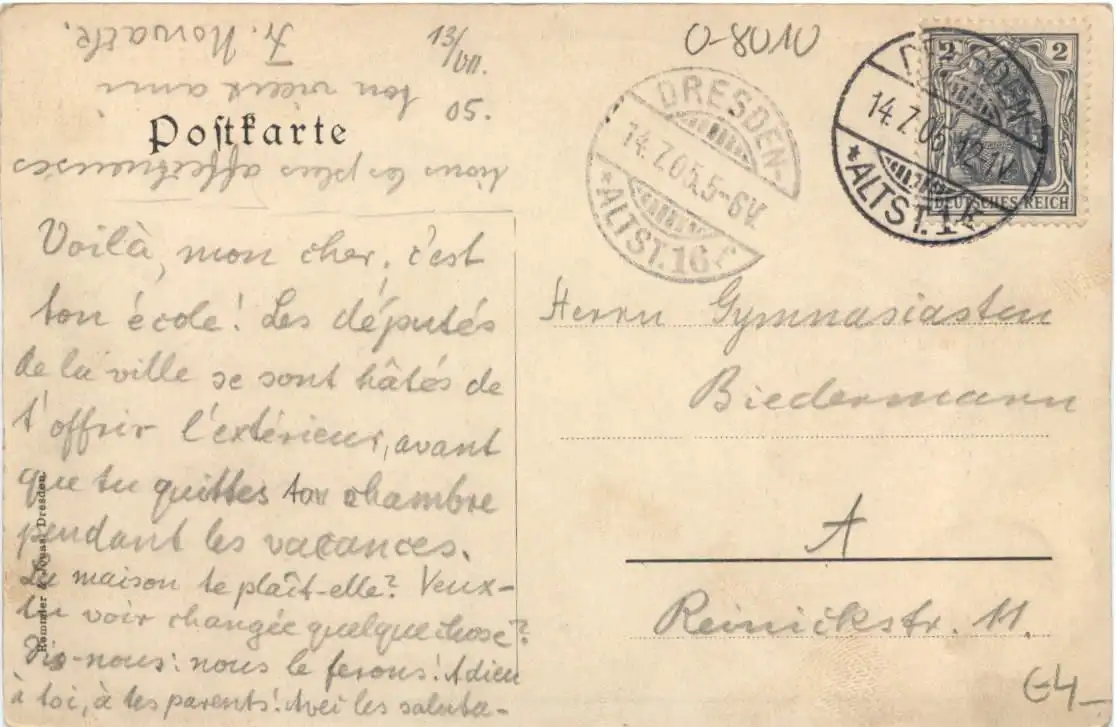 Postkarte
Voilà, mon cher, c'est
ton école! Les députés
de la ville se sont hâtés de
t'offrir l'extérieur, avant
que tu quittes ta chambre
pendant les vacances.
La maison te plaît-elle? Veux-
tu voir changée quelque chose?
Dis-nous: nous le ferons! Adieu
à toi, à tes parents! Avec les saluta-
tions les plus affectueuses
ton vieux ami
Fr.
13/VII.
05.
0-8010
DRESDEN-
14.7.05.5-6V.
*ALTST.16
DRESDEN-
14.7.05.12-1V.
*ALTST.1
2 2
DEUTSCHES REICH
Herrn Gymnasiasten
Biedermann
A
Reinickstr. 11.
Rommler & Jonas, Dresden